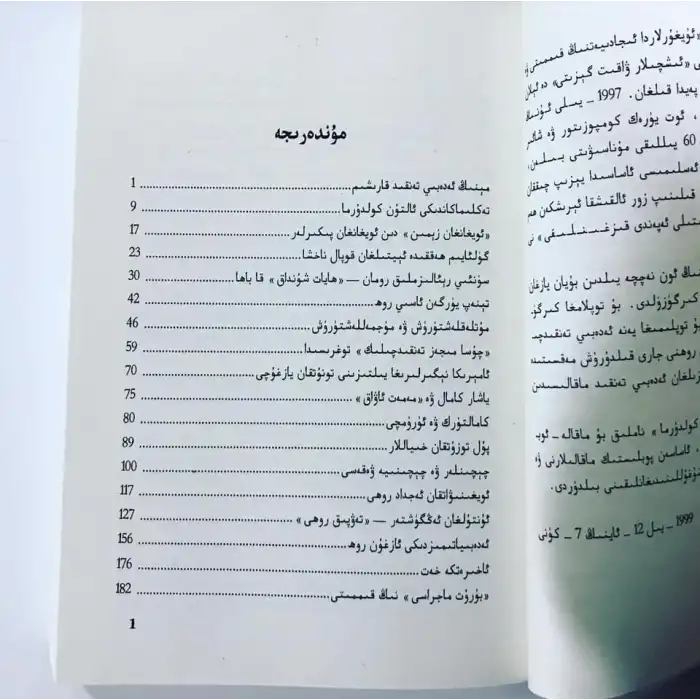 مۇندەرىجە
مېنىڭ ئەدەبىي تەنقىد قارىشىم ................ 1
تەكلىماكاندىكى ئالتۇن كولدۇرما ................ 9
«ئويغانغان زېمىن» دىن ئويغانغان پىكىرلەر ................ 17
گۈلئايىم ھەققىدە ئېيتىلغان قوپال ناخشا ................ 23
سۈنئىي رېئالىزملىق رومان — «ھايات شۇنداق» قا باھا ................ 30
تېنەپ يۈرگەن ئاسىي روھ ................ 42
مۇتلەقلەشتۈرۈش ۋە مۇجمەللەشتۈرۈش ................ 46
«چۇسا مىجەز تەنقىدچىلىك» توغرىسىدا ................ 59
ئامېرىكا نېگىرلىرىغا يىلتىزىنى تونۇتقان يازغۇچى ................ 70
ياشار كامال ۋە «مەمەت ئاۋاق» ................ 75
كامالتۈرك ۋە ئۈرۈمچى ................ 80
پۇل توزۇتقان خىياللار ................ 89
چېچىنلەر ۋە چېچىنىيە ۋەقەسى ................ 100
ئويغىنىۋاتقان ئەجداد روھى ................ 117
ئۇنتۇلغان ئەڭگۈشتەر — «تەۋپىق روھى» ................ 127
ئەدەبىياتىمىزدىكى ئازغۇن روھ ................ 156
ئاخىرەتكە خەت ................ 176
«بۇرۇت ماجىراسى» نىڭ قىممىتى ................ 182
1
«ئۇيغۇرلاردا ئىجادىيەتنىڭ قىممىتى
«ئىشچىلار ۋاقىت گېزىتى»
پەيدا قىلغان. 1997 - يىلى ئۇنىڭ
، ئوت يۈرەك كومپوزىتور ۋە شائىر
60 يىللىقى مۇناسىۋىتى بىلەن،
ئەسلىمىسى ئاساسىدا يېزىپ چىققان
قىلىنىپ زور ئالقىشقا ئېرىشكەن ھەم
ئەپەندى قىزغىنلىقى»
ئون نەچچە يىلدىن بۇيان يازغان
كىرگۈزۈلدى. بۇ توپلامغا كىرگۈ
توپلىمىغا يەنە ئەدەبىي تەنقىدچى
روھنى جارى قىلدۇرۇش مەقسىتىدە
ئەدەبىي تەنقىد ماقالىسىدىن
كولدۇرما» ناملىق بۇ ماقالە - ئوب
، ئاساسەن پوبلىستىك ماقالىلارنى
بىلدۈردى.
1999 - يىل 12 - ئاينىڭ 7 - كۈنى